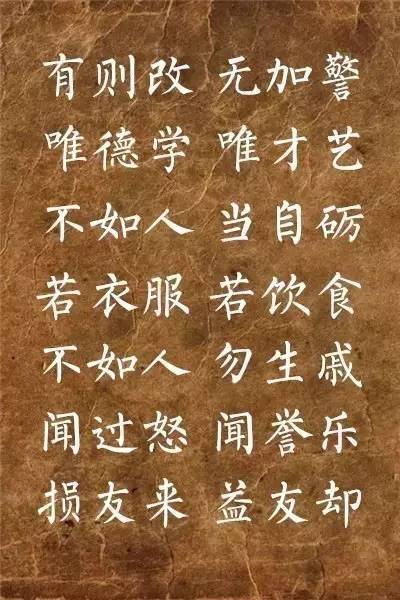 有则改 无加警
唯德学 唯才艺
不如人 当自砺
若衣服 若饮食
不如人 勿生戚
闻过怒 闻誉乐
损友来 益友却